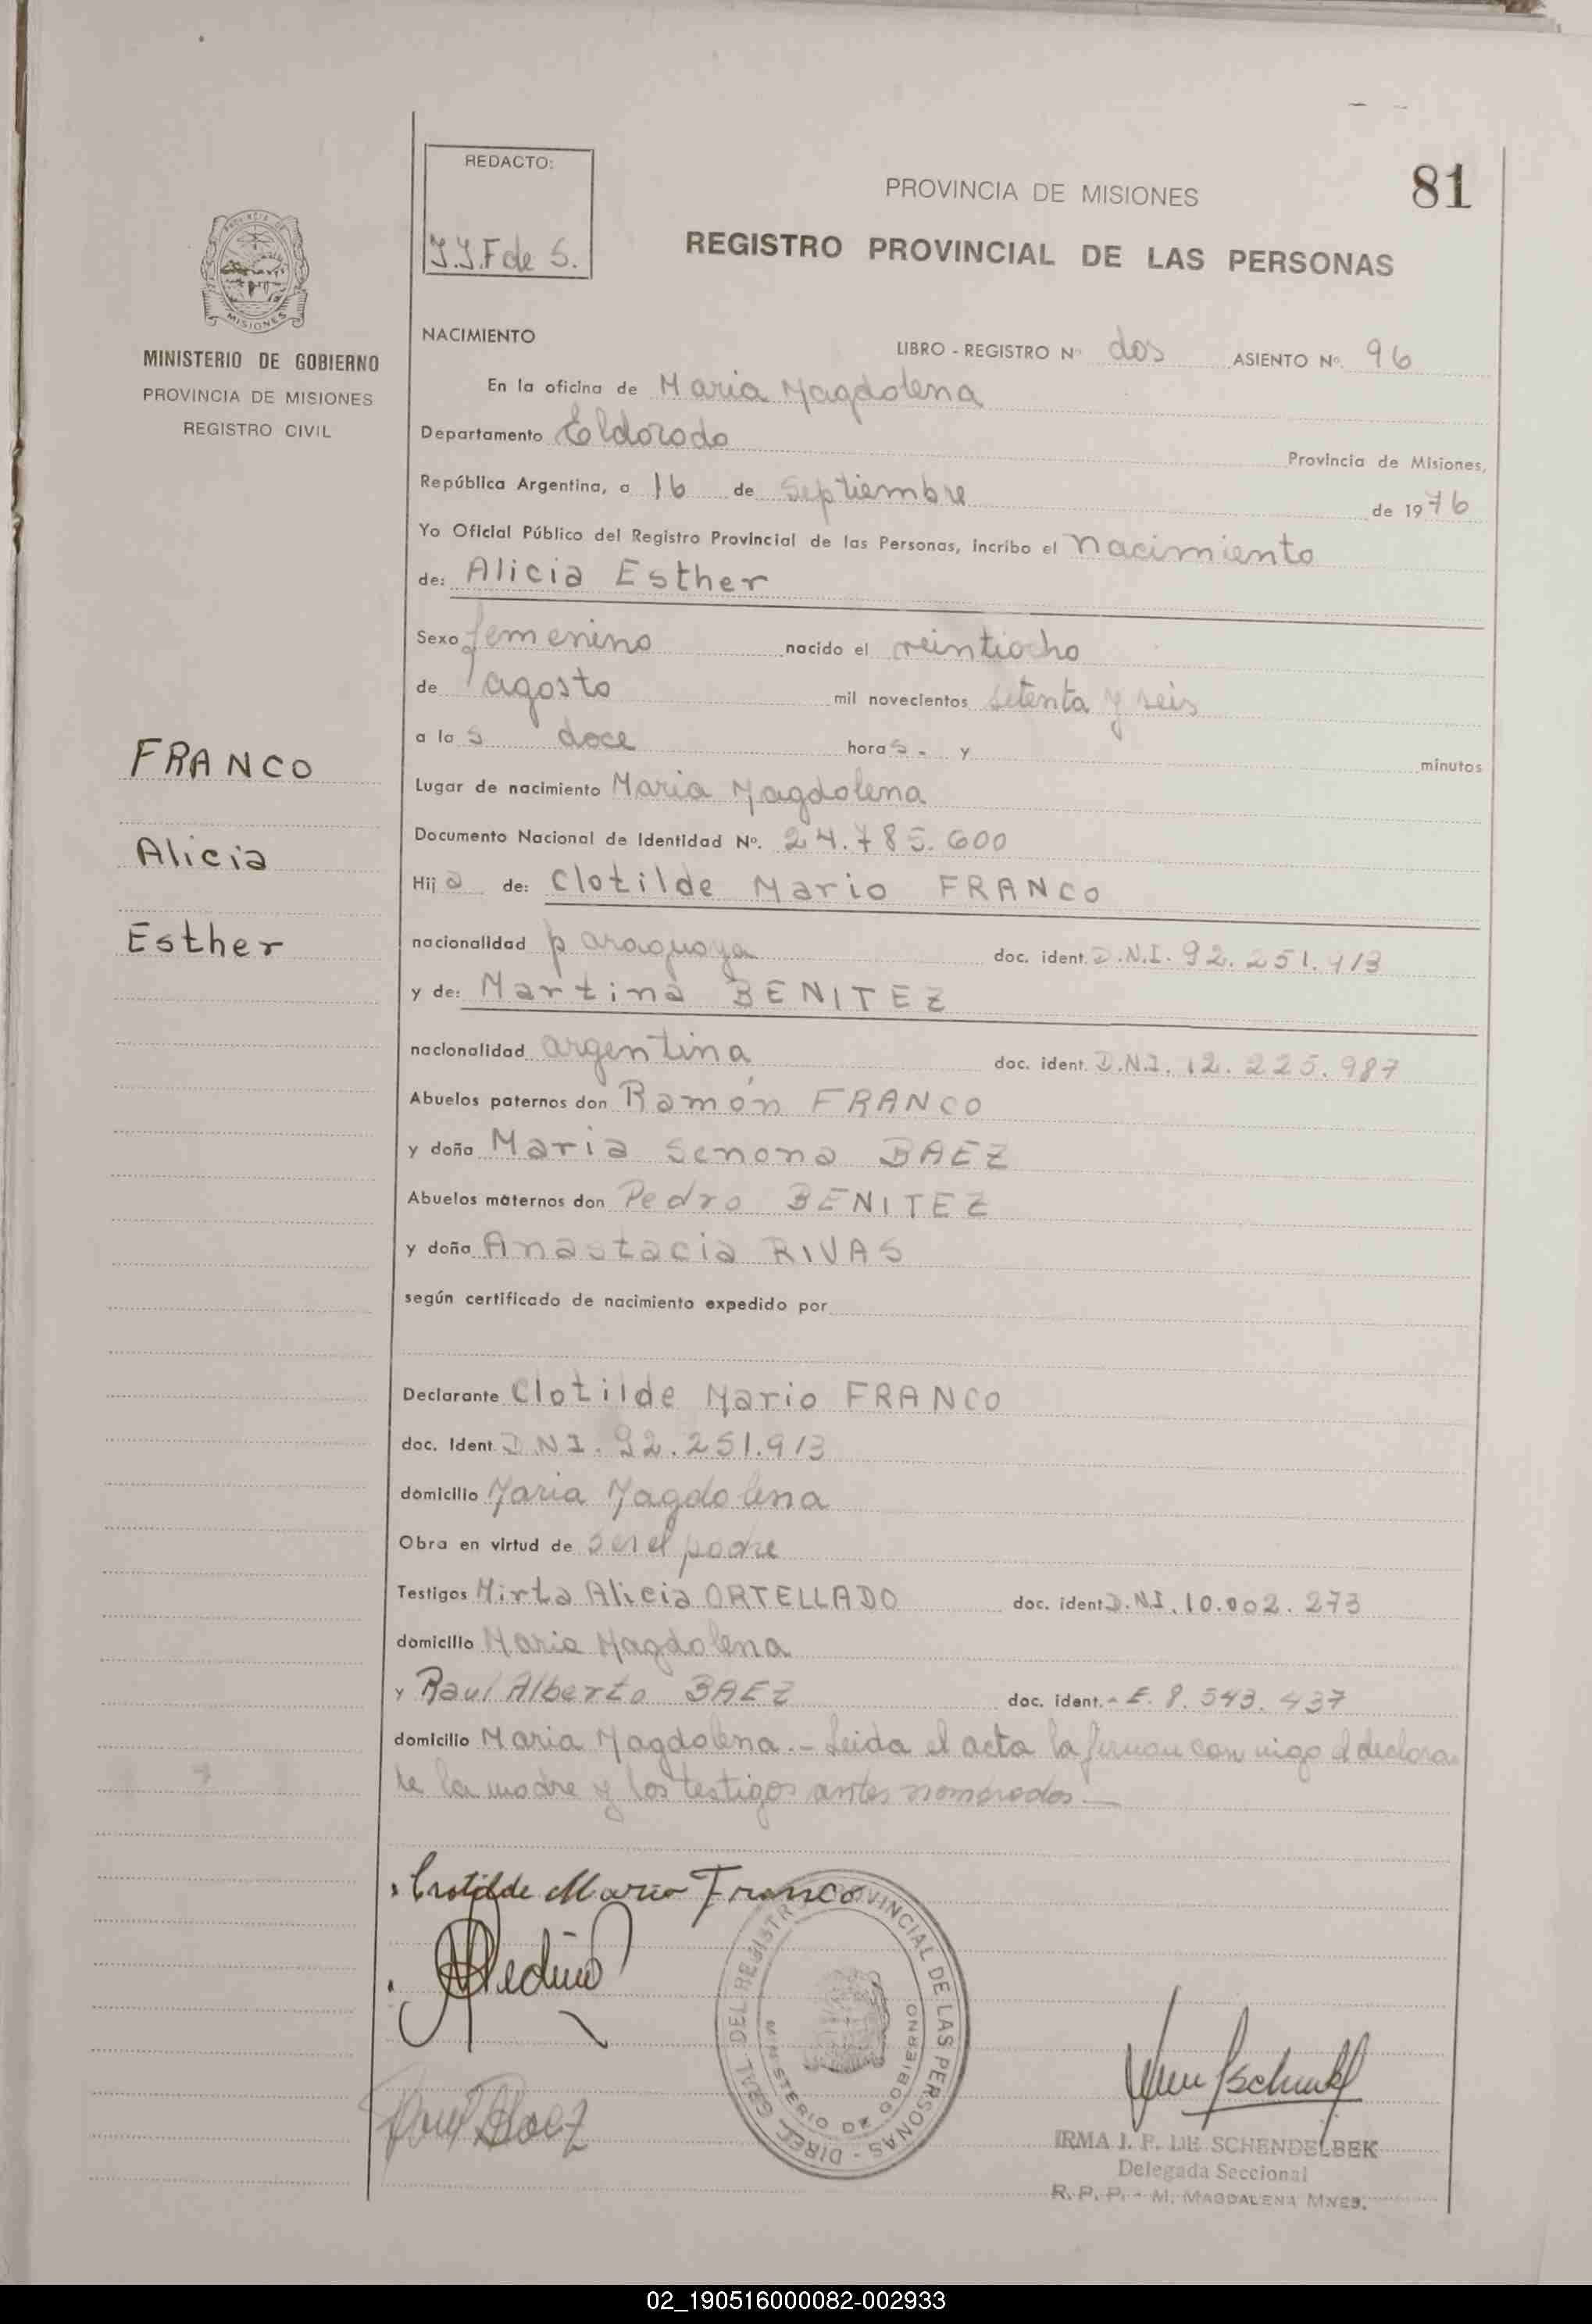 REDACTO:
PROVINCIA DE MISIONES
81
J.J.F de S.
REGISTRO PROVINCIAL DE LAS PERSONAS
MISIONES
MINISTERIO DE GOBIERNO
PROVINCIA DE MISIONES
REGISTRO CIVIL
NACIMIENTO
LIBRO - REGISTRO Nº dos ASIENTO Nº. 96
En la oficina de Maria Magdalena
Departamento Eldorado
Provincia de Misiones,
República Argentina, a 16 de Septiembre de 1976
Yo Oficial Público del Registro Provincial de las Personas, incribo el nacimiento
de: Alicia Esther
Sexo femenino nacido el veintiocho
de agosto mil novecientos setenta y seis
a las doce horas - y minutos
FRANCO
Lugar de nacimiento Maria Magdalena
Documento Nacional de Identidad Nº. 24.785.600
Alicia
Hija de: Clotilde Mario FRANCO
Esther
nacionalidad paraguaya doc. ident. D.N.I. 92.251.913
y de: Martina BENITEZ
nacionalidad argentina doc. ident. D.N.I. 12.225.987
Abuelos paternos don Ramón FRANCO
y doña Maria Senona BAEZ
Abuelos maternos don Pedro BENITEZ
y doña Anastacia RIVAS
según certificado de nacimiento expedido por
Declarante Clotilde Mario FRANCO
doc. Ident D N I. 92.251.913
domicilio Maria Magdalena
Obra en virtud de ser el padre
Testigos Mirta Alicia ORTELLADO doc. ident D.N.I. 10.002.273
domicilio Maria Magdalena
y Raul Alberto BAEZ doc. ident.- E. 8.543.437
domicilio Maria Magdalena.- Leida el acta la firman con migo el declaran
te la madre y los testigos antes nombrados.—
Clotilde Mario Franco
DIREC. GRAL. DEL REGISTRO PROVINCIAL DE LAS PERSONAS -
MINISTERIO DE GOBIERNO
Raul Baez
IRMA J. F. DE SCHENDELBEK
Delegada Seccional
R. P. P. - M. MAGDALENA MNES.
02_190516000082-002933